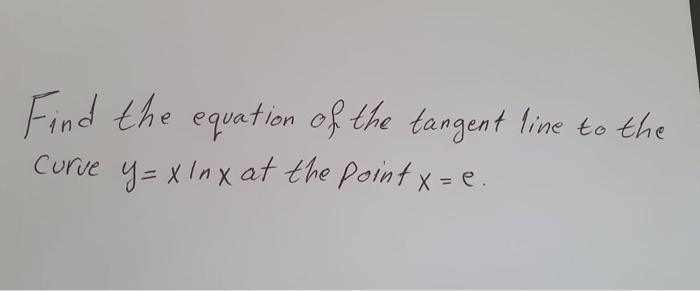 Find the equation of the tangent line to the
curve y = x ln x at the point x = e.